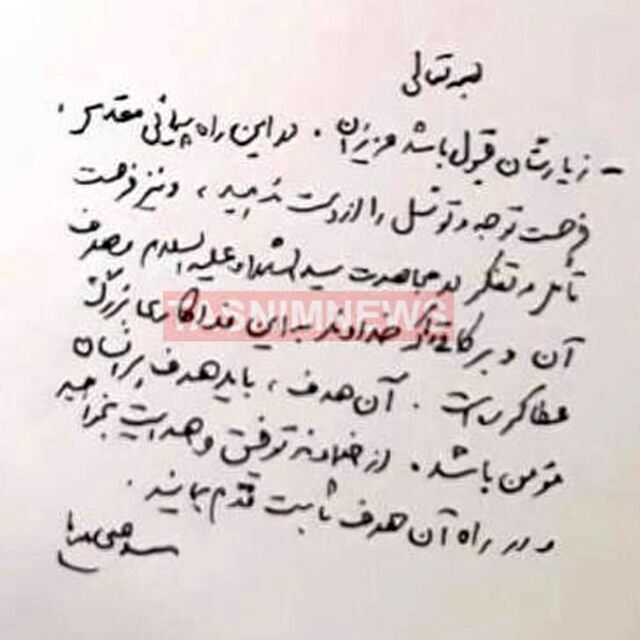 بسمه‌تعالی
- زیارتتان قبول باشد عزیزان. در این راه‌پیمائی مقدس،
فرصت توجه و توسّل را از دست ندهید، و نیز فرصت
تأمل و تفکر در مجاهدت سیدالشهداء علیه‌السلام و هدف
آن و برکاتی که خداوند به این فداکاری بزرگ
TASNIMNEWS
عطا کرده است. آن هدف، باید هدف هر انسان
مؤمن باشد. از خداوند توفیق و هدایت بخواهید
و در راه آن هدف ثابت قدم بمانید.